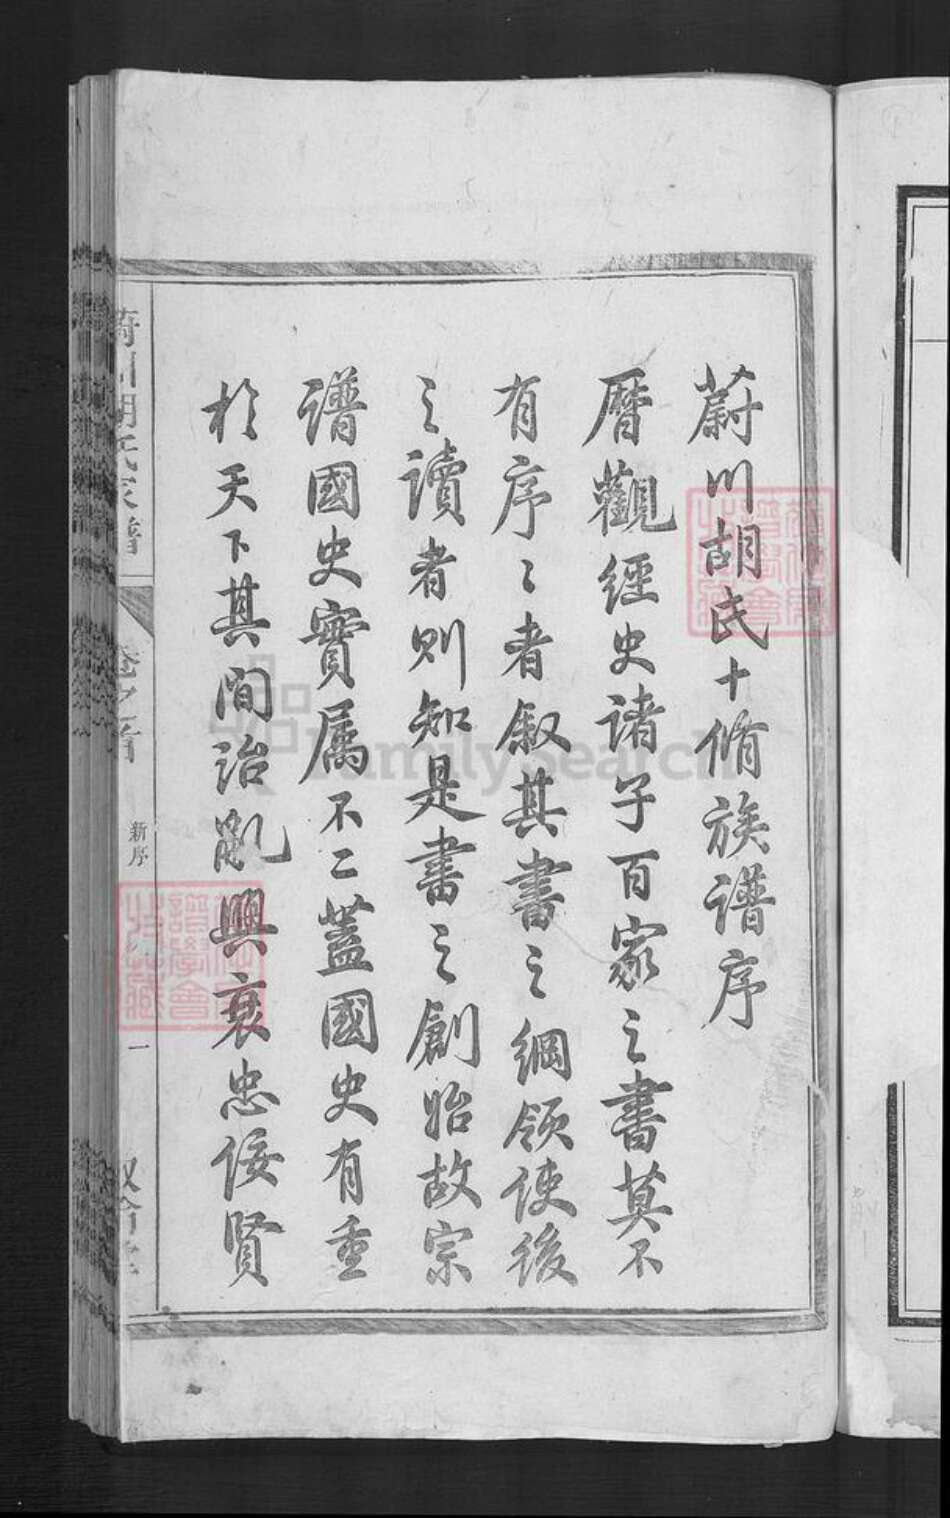 蔚川胡氏十脩族譜序
曆觀經史諸子百家之書莫不
有序〻者叙其書之綱領使後
之讀者則知是書之創始故宗
譜國史實属不二蓋國史有重
於天下其間治亂興衰忠佞賢
蔚川胡氏家譜
卷之首
新序
一
FamilySearch